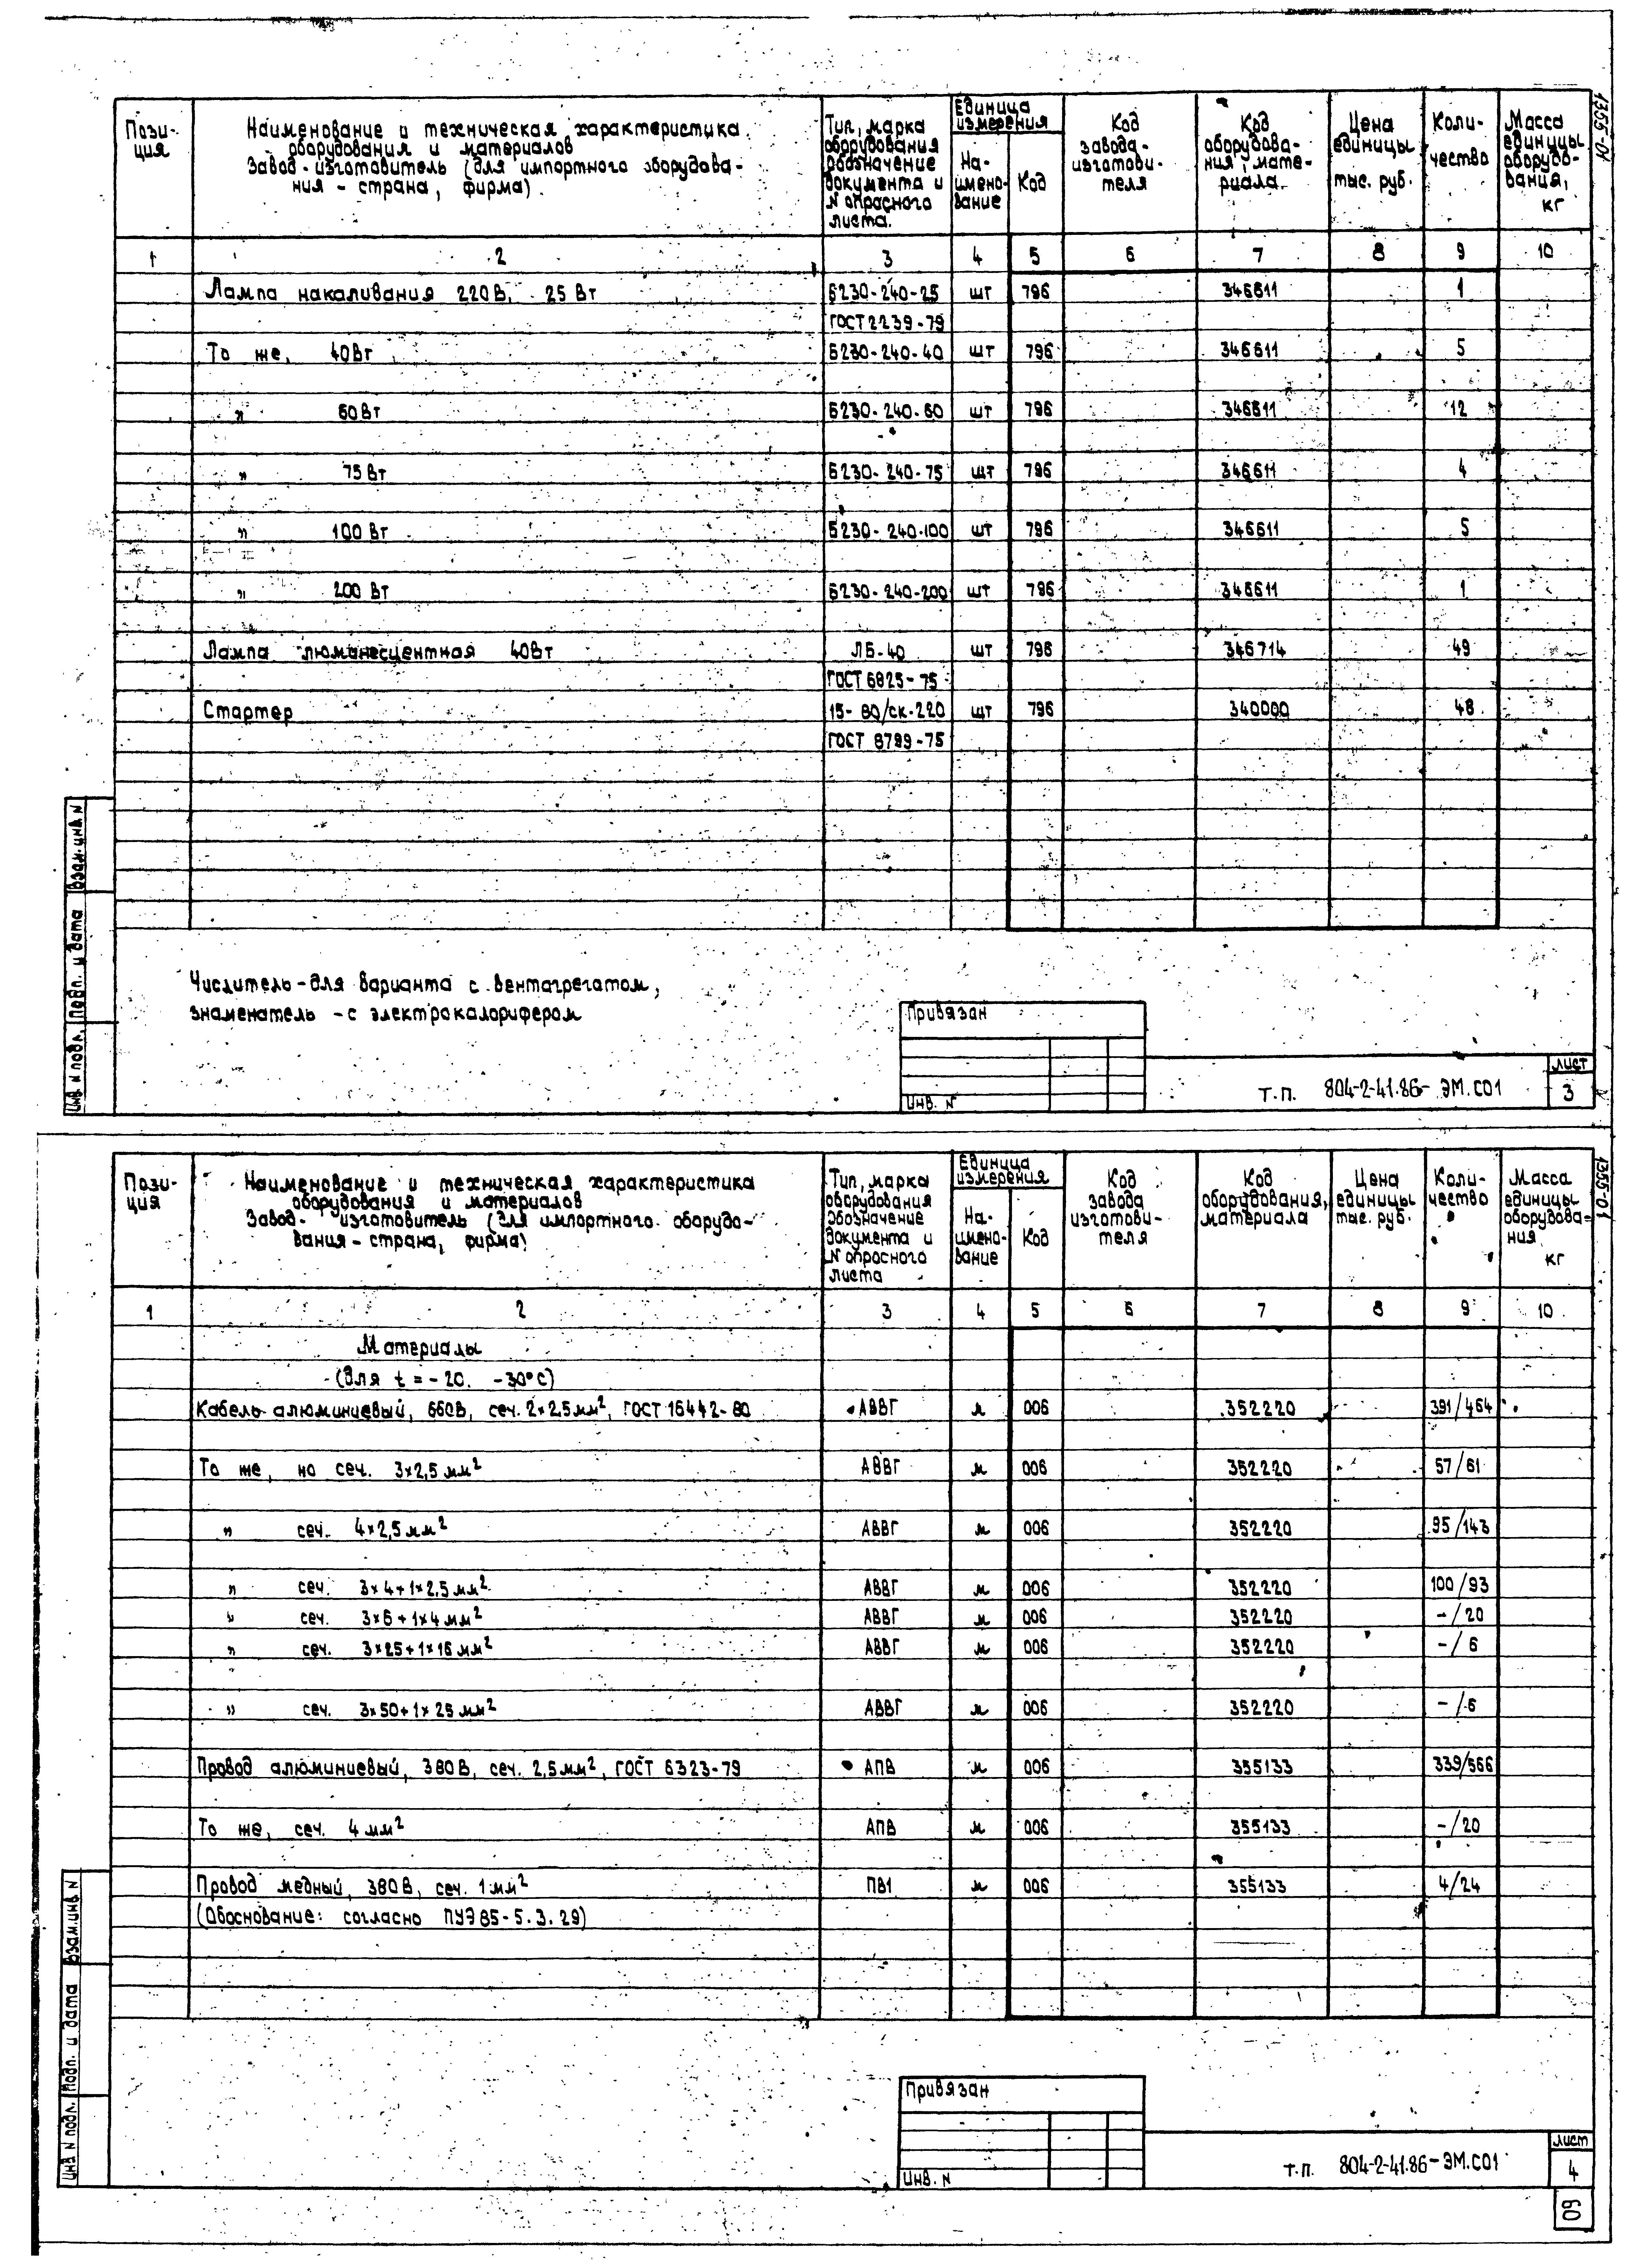 1355-01
Пози-
ция
Наименование и техническая характеристика
оборудования и материалов
Завод-изготовитель (для импортного оборудова-
ния - страна, фирма).
Тип, марка
оборудования
Обозначение
документа и
N опросного
листа.
Единица
измерения
На-
имено-
вание
Код
Код
завода-
изготови-
теля
Код
оборудова-
ния, мате-
риала
Цена
единицы
тыс. руб.
Коли-
чество
Масса
единицы
оборудо-
вания,
кг
1 2 3 4 5 6 7 8 9 10
Лампа накаливания 220В, 25 Вт Б230-240-25 шт 796 346611 1
ГОСТ 2239-79
То же, 40Вт Б230-240-40 шт 796 346611 5
" 60Вт Б230-240-60 шт 796 346611 12
" 75Вт Б230-240-75 шт 796 346611 4
" 100 Вт Б230-240-100 шт 796 346611 5
" 200 Вт Б230-240-200 шт 796 346611 1
Лампа люминесцентная 40Вт ЛБ-40 шт 796 346714 49
ГОСТ 6825-75
Стартер 15-80/ск-220 шт 796 340000 48
ГОСТ 8799-75
Числитель-для варианта с вентагрегатом,
знаменатель -с электрокалорифером
Инв. N подл. Подп. и дата Взам.инв. N
Привязан
Инв. N
т.п. 804-2-41.86- ЭМ.СО1
лист
3
1355-01
Пози-
ция
Наименование и техническая характеристика
оборудования и материалов
Завод-изготовитель (для импортного оборудо-
вания-страна, фирма)
Тип, марка
оборудования
Обозначение
документа и
N опросного
листа
Единица
измерения
На-
имено-
вание
Код
Код
завода
изготови-
теля
Код
оборудования,
материала
Цена
единицы
тыс. руб.
Коли-
чество
Масса
единицы
оборудова-
ния
кг
1 2 3 4 5 6 7 8 9 10
Материалы
(для t = -20. -30°С)
Кабель алюминиевый, 660В, сеч. 2×2.5мм², ГОСТ 16442-80 АВВГ м 006 352220 391/464
То же, но сеч. 3×2,5 мм² АВВГ м 006 352220 57/61
" сеч. 4×2,5 мм² АВВГ м 006 352220 95/143
" сеч. 3×4+1×2.5 мм² АВВГ м 006 352220 100/93
" сеч. 3×6+1×4 мм² АВВГ м 006 352220 -/20
" сеч. 3×25+1×16 мм² АВВГ м 006 352220 -/6
" сеч. 3×50+1×25 мм² АВВГ м 006 352220 -/6
Провод алюминиевый, 380В, сеч. 2,5мм², ГОСТ 6323-79 АПВ м 006 355133 339/566
То же, сеч. 4 мм² АПВ м 006 355133 -/20
Провод медный, 380В, сеч. 1мм² ПВ1 м 006 355133 4/24
(Обоснование: согласно ПУЭ85-5.3.29)
Инв N подл. Подп. и дата Взам.инв N
Привязан
Инв. N
т.п. 804-2-41.86-ЭМ.СО1
лист
4
60